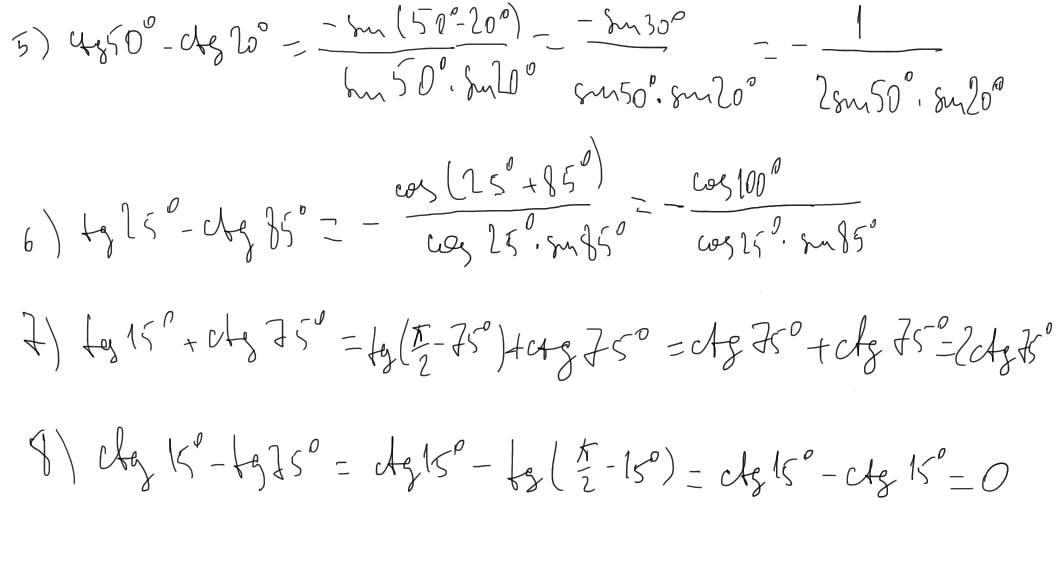 5) ctg50° - ctg20° = -sin(50°-20°) / sin50°·sin20° = -sin30° / sin50°·sin20° = - 1 / 2sin50°·sin20°
6) tg25° - ctg85° = - cos(25°+85°) / cos25°·sin85° = - cos100° / cos25°·sin85°
7) tg15° + ctg75° = tg(π/2 - 75°) + ctg75° = ctg75° + ctg75° = 2ctg75°
8) ctg15° - tg75° = ctg15° - tg(π/2 - 15°) = ctg15° - ctg15° = 0